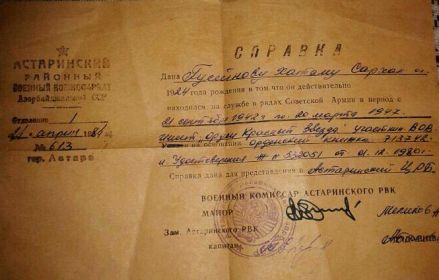 АСТАРИНСКИЙ
РАЙОННЫЙ
ВОЕННЫЙ КОМИССАРИАТ
Азербайджанской ССР
Отделение 1
апрел 1981 г.
№ 613
гор. Астара
СПРАВКА
Дана Гусейнову Хатаму Сархан ог.
1924 года рождения в том что он действительно
находился на службе в рядах Советской Армии в период с
сентября 1942 г. по 20 марта 1947.
имеет орден Красной Звезда участник ВОВ
на основании орденский книжка
и Удостоверения № от 01.12.1980 г.
Справка дана для представления в Астаринский ЦРБ.
ВОЕННЫЙ КОМИССАР АСТАРИНСКОГО РВК
МАЙОР
Зам. Астаринского РВК
капитан